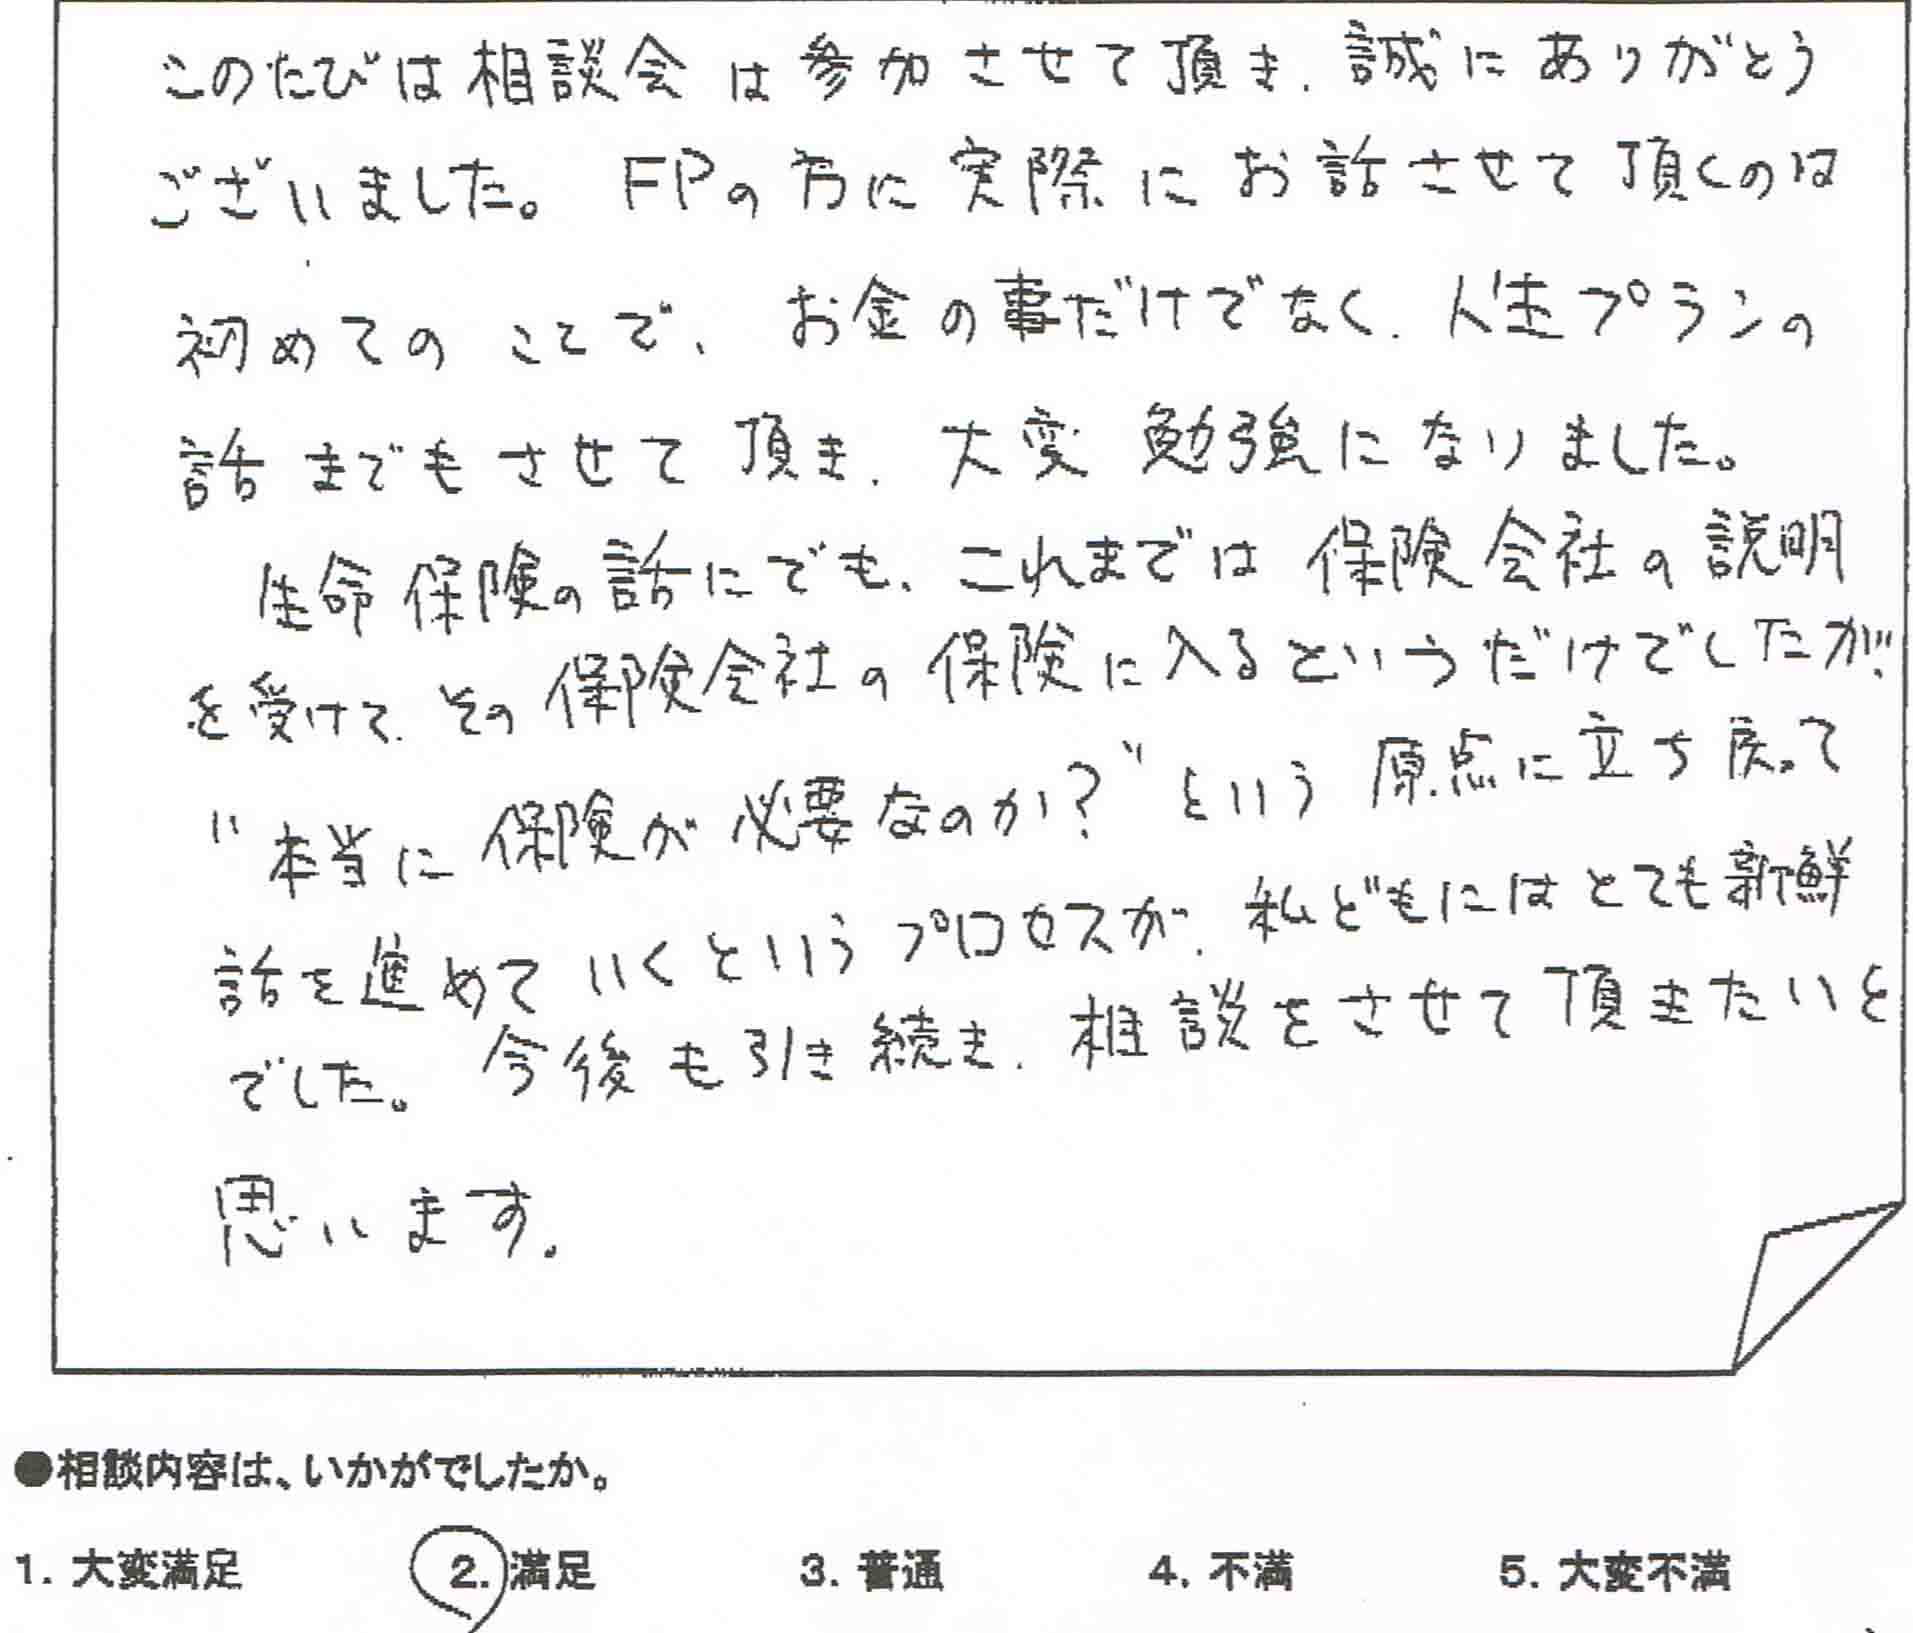 このたびは相談会は参加させて頂き、誠にありがとう
ございました。FPの方に実際にお話させて頂くのは
初めてのことで、お金の事だけでなく、人生プランの
話までもさせて頂き、大変勉強になりました。
生命保険の話にでも、これまでは保険会社の説明
を受けて、その保険会社の保険に入るというだけでしたが、
"本当に保険が必要なのか?"という原点に立ち戻って
話を進めていくというプロセスが、私どもにはとても新鮮
でした。今後も引き続き、相談をさせて頂きたいと
思います。
●相談内容は、いかがでしたか。
1. 大変満足 2. 満足 3. 普通 4. 不満 5. 大変不満